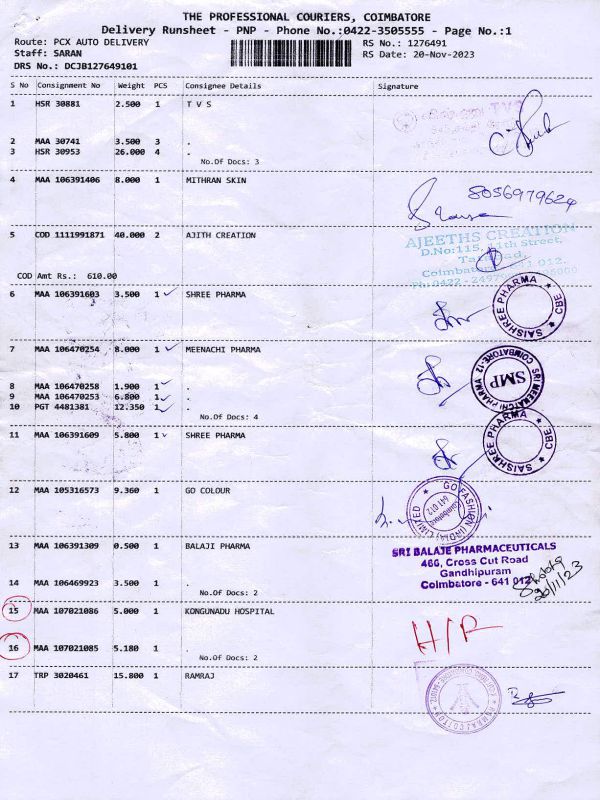 THE PROFESSIONAL COURIERS, COIMBATORE
Delivery Runsheet - PNP - Phone No.:0422-3505555 - Page No.:1
Route: PCX AUTO DELIVERY RS No.: 1276491
Staff: SARAN RS Date: 20-Nov-2023
DRS No.: DCJB127649101
S No Consignment No Weight PCS Consignee Details Signature
1 HSR 30881 2.500 1 T V S
TVS
2 MAA 30741 3.500 3 .
3 HSR 30953 26.000 4 .
No.Of Docs: 3
4 MAA 106391406 8.000 1 MITHRAN SKIN
8056979624
5 COD 1111991871 40.000 2 AJITH CREATION
AJEETHS CREATION
D.No:115, 11th Street,
Coimbatore - 641 012.
COD Amt Rs.: 610.00
6 MAA 106391603 3.500 1 SHREE PHARMA
SAISHREE PHARMA ★ CBE ★
7 MAA 106470254 8.000 1 MEENACHI PHARMA
SRI MEENATCHI PHARMA ★ COIMBATORE-12
SMP
8 MAA 106470258 1.900 1 .
9 MAA 106470253 6.800 1 .
10 PGT 4481381 12.350 1 .
No.Of Docs: 4
11 MAA 106391609 5.800 1 SHREE PHARMA
SAISHREE PHARMA ★ CBE ★
12 MAA 105316573 9.360 1 GO COLOUR
GO FASHION (INDIA) LIMITED ★
Coimbatore
641 012
13 MAA 106391309 0.500 1 BALAJI PHARMA
SRI BALAJE PHARMACEUTICALS
466, Cross Cut Road
Gandhipuram
Coimbatore - 641 012
14 MAA 106469923 3.500 1 .
No.Of Docs: 2
20/11/23
15 MAA 107021086 5.000 1 KONGUNADU HOSPITAL
H/P
16 MAA 107021085 5.180 1 .
No.Of Docs: 2
17 TRP 3020461 15.800 1 RAMRAJ